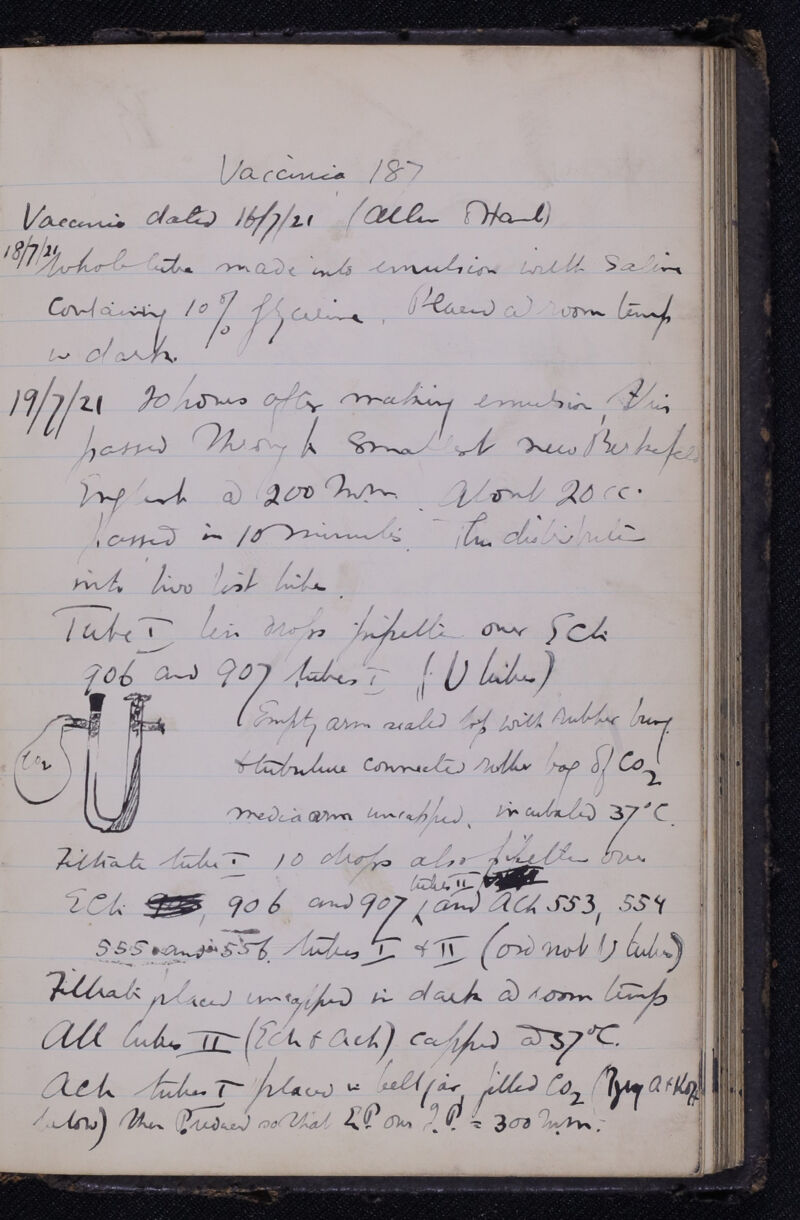 Vaccinia 187
Vaccinia dated 16/7/21 (Allen & Hanb)
18/7/21 Whole tube made into emulsion with Saline
containing 10% glycerine. Placed @ room temp
in dark.
19/7/21 20 hours after making emulsion, this
passed through smallest new Berkefeld
English @ 200 m.m. About 20 cc.
passed in 10 minutes. This distributed
into two test tubes.
Tube I ten drops pipetted over Ech
906 and 907 tubes I (U tubes)
CO2
Empty arm sealed top with rubber bung
& tubulure connected rubber bag of CO2
media arm uncapped, incubated 37°C.
Filtrate tube I 10 drops also pipetted over
tubes II
Ech 906 and 907, and Ach 553, 554
555 and 556 tubes I & II (ord not U tubes)
Filtrate placed uncapped in dark @ room temp
All tubes II (Ech & Ach) capped @ 37°C.
Ach tubes I placed in bell jar, filled CO2 (
below) then P. reduced so that E.P. over I.P. = 300 m.m.